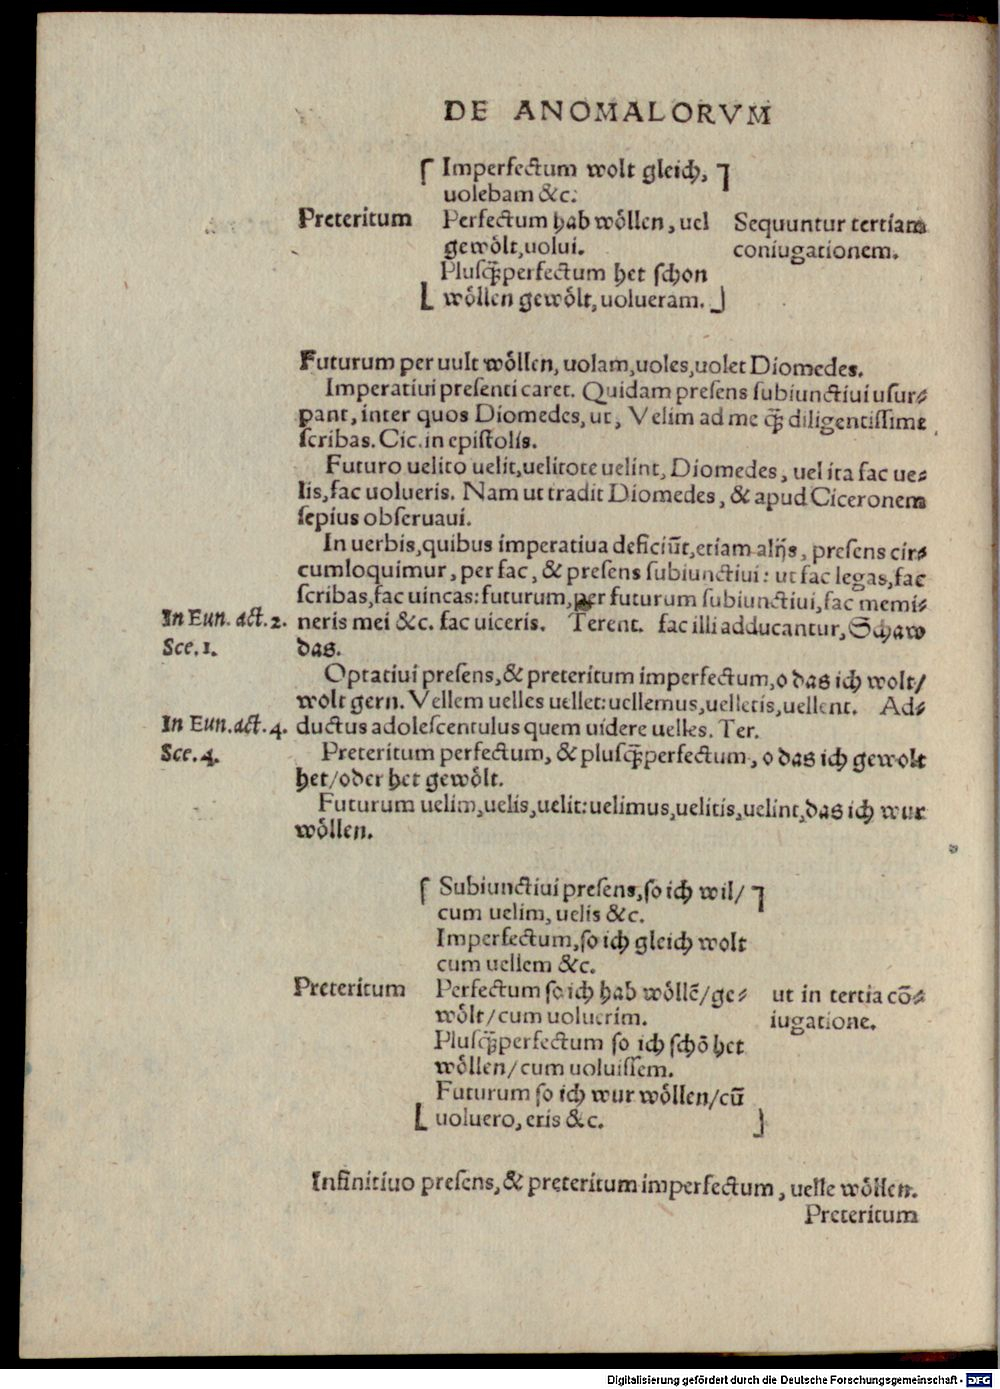 DE ANOMALORVM
Imperfectum wolt gleich,
uolebam &c.
Preteritum Perfectum hab wöllen, uel Sequuntur tertiam
gewölt, uolui. coniugationem.
Plusq̃perfectum het schon
wöllen gewölt, uolueram.
Futurum per uult wöllen, uolam, uoles, uolet Diomedes.
Imperatiui presenti caret. Quidam presens subiunctiui usur⸗
pant, inter quos Diomedes, ut, Velim ad me q̃ diligentissime
scribas. Cic. in epistolis.
Futuro uelito uelit, uelitote uelint, Diomedes, uel ita fac ue⸗
lis, fac uolueris. Nam ut tradit Diomedes, & apud Ciceronem
sepius obseruaui.
In uerbis, quibus imperatiua deficiũt, etiam alijs, presens cir⸗
cumloquimur, per fac, & presens subiunctiui: ut fac legas, fac
scribas, fac uincas: futurum, per futurum subiunctiui, fac memi⸗
In Eun. act. 2. neris mei &c. fac uiceris. Terent. fac illi adducantur, Schaw
Sce. 1. das.
Optatiui presens, & preteritum imperfectum, o das ich wolt/
wolt gern. Vellem uelles uellet: uellemus, uelletis, uellent. Ad⸗
In Eun. act. 4. ductus adolescentulus quem uidere uelles. Ter.
Sce. 4. Preteritum perfectum, & plusq̃perfectum, o das ich gewolt
het/oder het gewölt.
Futurum uelim, uelis, uelit: uelimus, uelitis, uelint, das ich wur
wöllen.
Subiunctiui presens, so ich wil/
cum uelim, uelis &c.
Imperfectum, so ich gleich wolt
cum uellem &c.
Preteritum Perfectum so ich hab wöllẽ/ge⸗ ut in tertia cõ⸗
wölt/cum uoluerim. iugatione.
Plusq̃perfectum so ich schõ het
wöllen/cum uoluissem.
Futurum so ich wur wöllen/cũ
uoluero, eris &c.
Infinitiuo presens, & preteritum imperfectum, uelle wöllen.
Preteritum
Digitalisierung gefördert durch die Deutsche Forschungsgemeinschaft - DFG